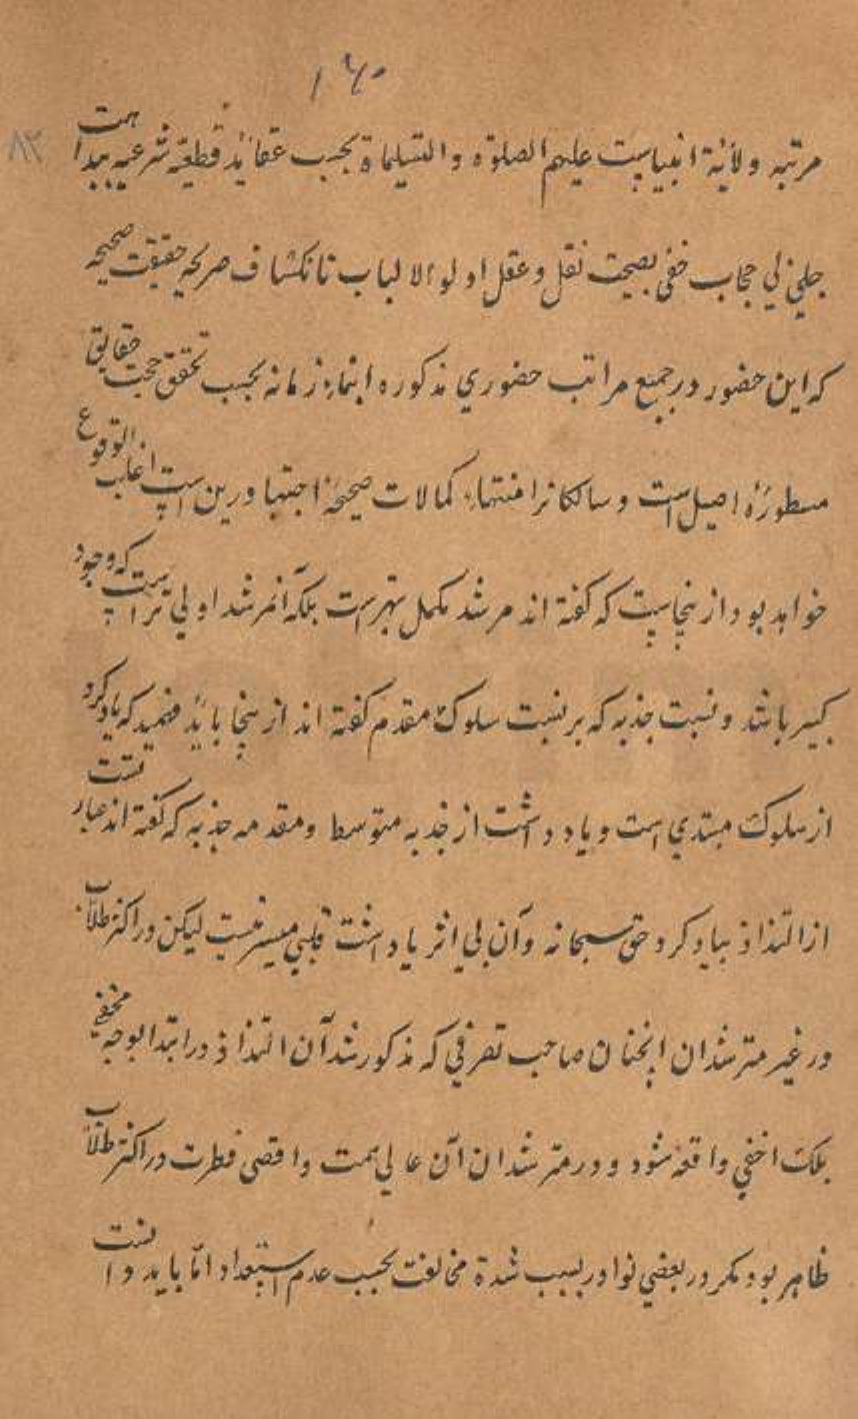 ۱۶۰
۸۲
مرتبه ولایة انبیاست علیهم الصلوة والتسلیماة بحسب عقائد قطعیه شرعیه ببداهت
جلی بی حجاب خفی بصحت نقل و عقل اولو الالباب تا انکشاف صریحه حقیقت صحیحه
که این حضور در جمیع مراتب حضوری مذکوره ابناء زمانه بحسب تحقق حجت حقایق
مسطوره اصیل است و سالکانرا منتهاء کمالات صحیحه اجتبا درین است اغلب الوقوع
خواهد بود ازینجاست که گفته اند مرشد مکمل بهتر است بلکه آنمرشد اولی تر است که وجود
کبیر باشد و نسبت جذبه که بر نسبت سلوک مقدم گفته اند ازینجا باید فهمید که یاد کرد
از سلوک مبتدی است و یاد داشت از جذبه متوسط و مقدمه جذبه که گفته اند عبارتست
از التذاذ بیاد کرد حق سبحانه و آن بی اثر یادداشت قلبی میسر نیست لیکن در اکثر طلاب
در غیر مترشدان اینچنان صاحب تصرفی که مذکور شد آن التذاذ در ابتدا بوجه مخفی
بلک اخفی واقعه شود و در مترشدان آن عالی همت و اقصی فطرت در اکثر طلاب
ظاهر بود مگر در بعضی نوادر بسبب شدة مخالفت بحسب عدم استعداد اما باید دانست